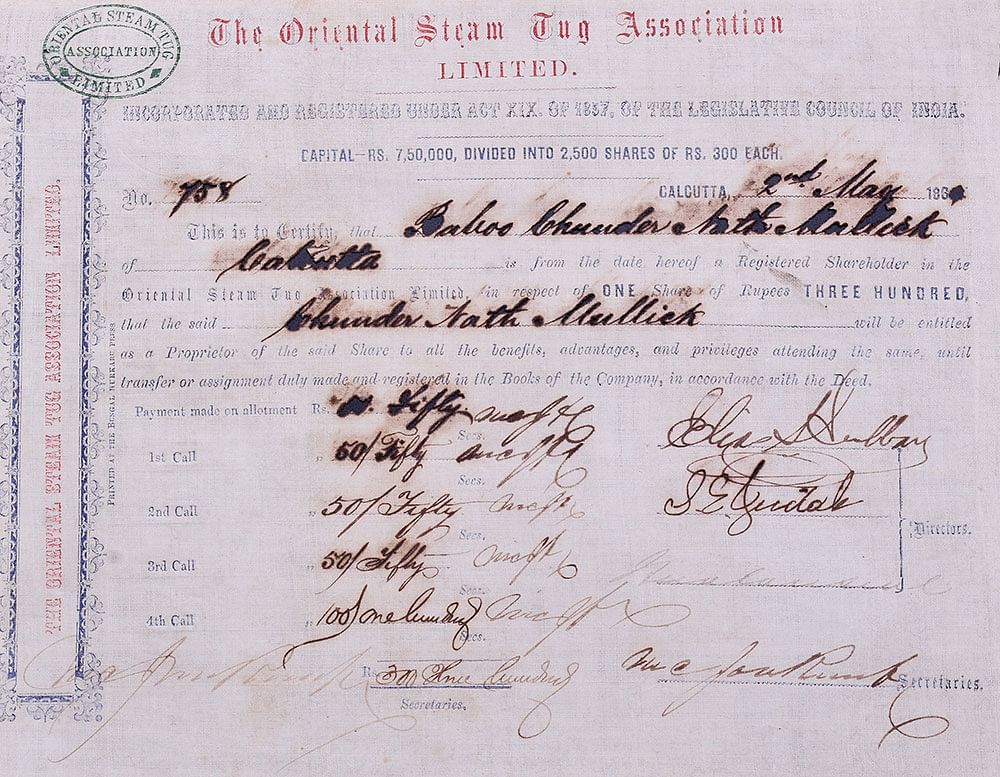 ORIENTAL STEAM TUG
ASSOCIATION
LIMITED
The Oriental Steam Tug Association
LIMITED.
INCORPORATED AND REGISTERED UNDER ACT XIX. OF 1857, OF THE LEGISLATIVE COUNCIL OF INDIA.
CAPITAL—RS. 7,50,000, DIVIDED INTO 2,500 SHARES OF RS. 300 EACH.
No. 758 CALCUTTA, 2nd May 186
This is to Certify, that Baboo Chunder Nath Mullick
of Calcutta is from the date hereof a Registered Shareholder in the
Oriental Steam Tug Association Limited, in respect of ONE Share of Rupees THREE HUNDRED,
that the said Chunder Nath Mullick will be entitled
as a Proprietor of the said Share to all the benefits, advantages, and privileges attending the same, until
transfer or assignment duly made and registered in the Books of the Company, in accordance with the Deed.
Payment made on allotment Rs. Fifty
Secs.
1st Call " 50/ Fifty
Secs.
2nd Call " 50/ Fifty
Secs.
3rd Call " 50/ Fifty
Secs.
4th Call " 100/ one hundred
Secs.
Directors.
Rs. 300 Three hundred
Secretaries.
Secretaries.
THE ORIENTAL STEAM TUG ASSOCIATION LIMITED.
PRINTED AT THE BENGAL HURKARU PRESS